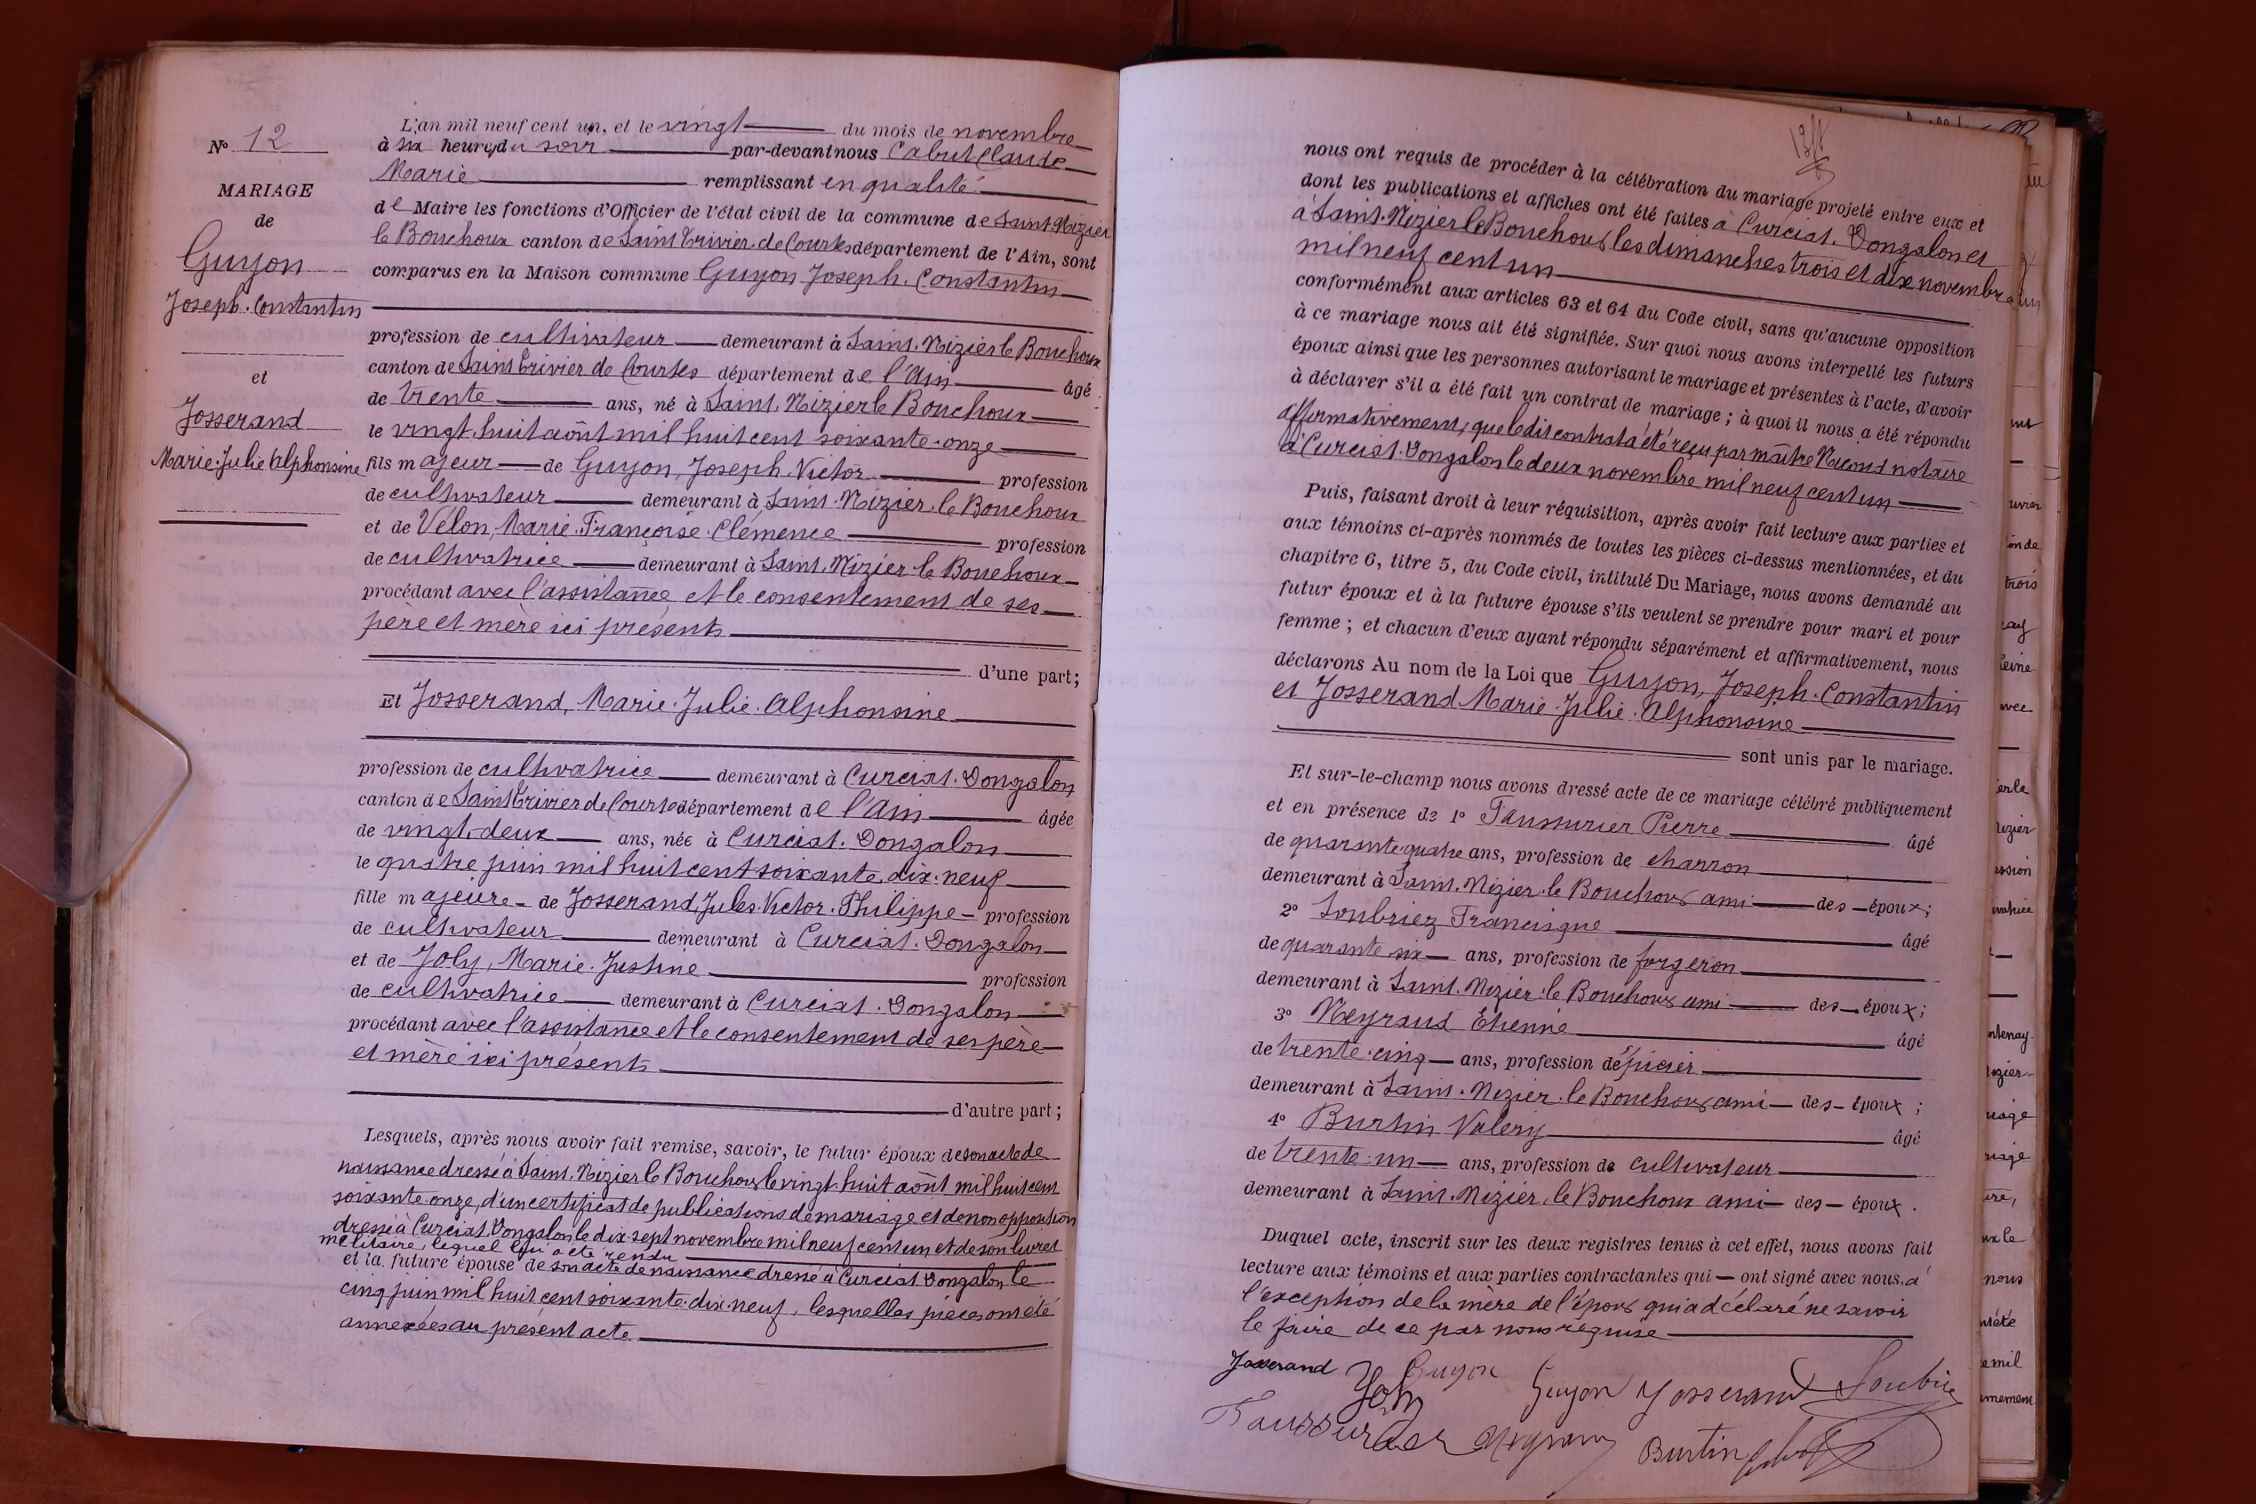 N° 12
MARIAGE
de
Guyon
Joseph. Constantin
et
Josserand
Marie. Julie. Alphonsine
L'an mil neuf cent un, et le vingt du mois de novembre
à six heures du soir par-devant nous Cabut Claude
Marie remplissant en qualité
de Maire les fonctions d'Officier de l'état civil de la commune de Saint. Nizier
le Bouchoux canton de Saint Trivier de Courtes département de l'Ain, sont
comparus en la Maison commune Guyon Joseph. Constantin
profession de cultivateur demeurant à Saint. Nizier le Bouchoux
canton de Saint Trivier de Courtes département de l'Ain âgé
de trente ans, né à Saint. Nizier le Bouchoux
le vingt. huit août mil huit cent soixante. onze
fils majeur de Guyon, Joseph. Victor profession
de cultivateur demeurant à Saint. Nizier. le Bouchoux
et de Vélon, Marie. Françoise. Clémence profession
de cultivatrice demeurant à Saint. Nizier. le Bouchoux
procédant avec l'assistance et le consentement de ses
père et mère ici présents
d'une part;
Et Josserand, Marie. Julie. Alphonsine
profession de cultivatrice demeurant à Curciat. Dongalon
canton de Saint Trivier de Courtes département de l'Ain âgée
de vingt. deux ans, née à Curciat. Dongalon
le quatre juin mil huit cent soixante. dix. neuf
fille majeure de Josserand, Jules. Victor. Philippe profession
de cultivateur demeurant à Curciat. Dongalon
et de Joly, Marie. Justine profession
de cultivatrice demeurant à Curciat. Dongalon
procédant avec l'assistance et le consentement de ses père
et mère ici présents
d'autre part;
Lesquels, après nous avoir fait remise, savoir, le futur époux de son acte de
naissance dressé à Saint. Nizier le Bouchoux le vingt. huit août mil huit cent
soixante. onze, d'un certificat de publications de mariage et de non opposition
dressé à Curciat. Dongalon le dix. sept novembre mil neuf cent un et de son livret
militaire, lequel lui a été rendu
et la future épouse de son acte de naissance dressé à Curciat. Dongalon, le
cinq juin mil huit cent soixante. dix. neuf, lesquelles pièces ont été
annexées au présent acte
nous ont requis de procéder à la célébration du mariage projeté entre eux et
dont les publications et affiches ont été faites à Curciat. Dongalon et
à Saint. Nizier le Bouchoux les dimanches trois et dix novembre
mil neuf cent un
conformément aux articles 63 et 64 du Code civil, sans qu'aucune opposition
à ce mariage nous ait été signifiée. Sur quoi nous avons interpellé les futurs
époux ainsi que les personnes autorisant le mariage et présentes à l'acte, d'avoir
à déclarer s'il a été fait un contrat de mariage; à quoi il nous a été répondu
affirmativement, que ledit contrat a été reçu par maître notaire
à Curciat. Dongalon le deux novembre mil neuf cent un
Puis, faisant droit à leur réquisition, après avoir fait lecture aux parties et
aux témoins ci-après nommés de toutes les pièces ci-dessus mentionnées, et du
chapitre 6, titre 5, du Code civil, intitulé Du Mariage, nous avons demandé au
futur époux et à la future épouse s'ils veulent se prendre pour mari et pour
femme; et chacun d'eux ayant répondu séparément et affirmativement, nous
déclarons Au nom de la Loi que Guyon, Joseph. Constantin
et Josserand Marie. Julie. Alphonsine
sont unis par le mariage.
Et sur-le-champ nous avons dressé acte de ce mariage célébré publiquement
et en présence de 1° Faussurier Pierre âgé
de quarante. quatre ans, profession de charron
demeurant à Saint. Nizier. le Bouchoux ami des époux;
2° Soubriez Francisque âgé
de quarante. six ans, profession de forgeron
demeurant à Saint. Nizier. le Bouchoux ami des époux;
3° Meyraud Etienne âgé
de trente. cinq ans, profession d'épicier
demeurant à Saint. Nizier. le Bouchoux ami des époux;
4° Burtin Valery âgé
de trente. un ans, profession de cultivateur
demeurant à Saint. Nizier. le Bouchoux ami des époux.
Duquel acte, inscrit sur les deux registres tenus à cet effet, nous avons fait
lecture aux témoins et aux parties contractantes qui ont signé avec nous. à
l'exception de la mère de l'époux qui a déclaré ne savoir
le faire de ce par nous requise
Josserand Guyon Guyon Josserand
Joly
Faussurier Burtin